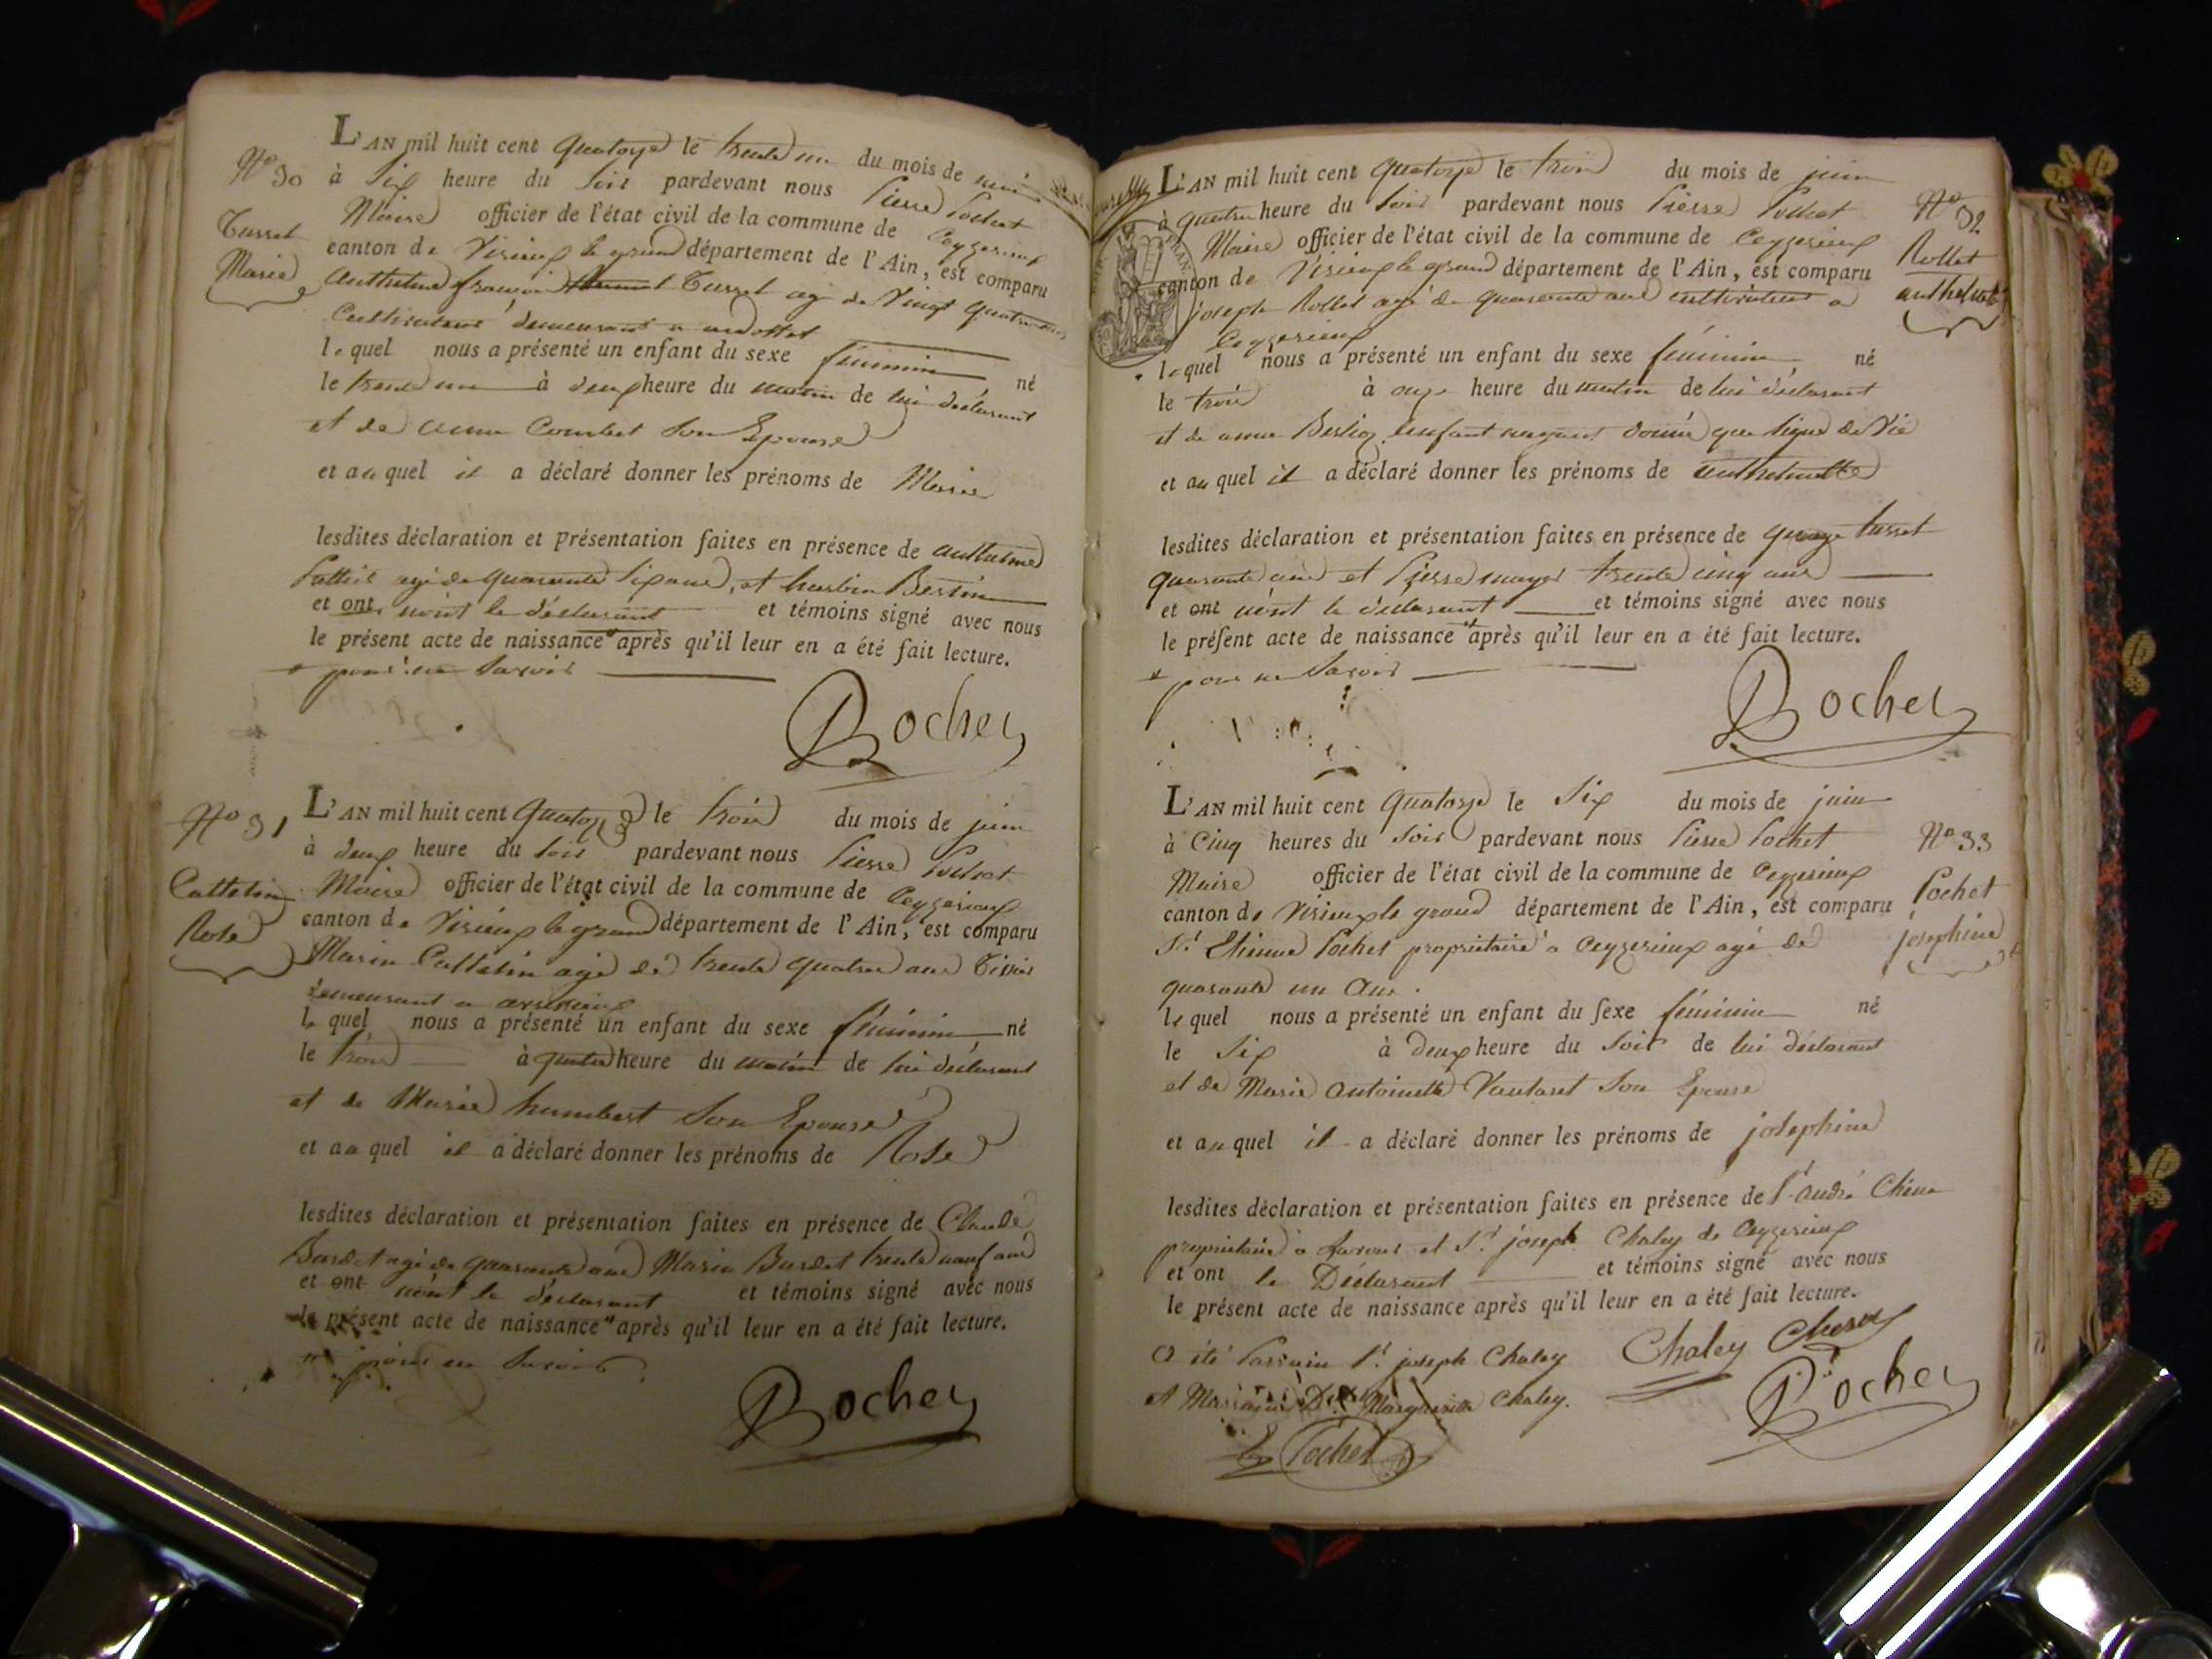 L'AN mil huit cent quatorze le trente un du mois de mai
N° 30 à six heure du soir pardevant nous Pierre Pochet
Maire officier de l'état civil de la commune de Ceyzerieux
Tusset
canton de Virieux le grand département de l'Ain, est comparu
Marie
Anthelme françois Tusset agé de vingt quatre ans
Cultivateur demeurant a
lequel nous a présenté un enfant du sexe féminin né
le trente un à deux heure du matin de lui déclarant
et de anne Combet son Epouse
et auquel il a déclaré donner les prénoms de Marie
lesdites déclaration et présentation faites en présence de anthelme
agé de quarante six ans, et
et ont n'ont le déclarant et témoins signé avec nous
le présent acte de naissance après qu'il leur en a été fait lecture.
* pour ne savoir
Pochet
N° 31
L'AN mil huit cent quatorze le trois du mois de juin
à deux heure du soir pardevant nous Pierre Pochet
Maire officier de l'état civil de la commune de Ceyzerieux
Cattelin
canton de Virieux le grand département de l'Ain, est comparu
Rose
Marin Cattelin agé de trente quatre ans
demeurant a
lequel nous a présenté un enfant du sexe féminin né
le trois à quatre heure du matin de lui déclarant
et de Marie humbert son Epouse
et auquel il a déclaré donner les prénoms de Rose
lesdites déclaration et présentation faites en présence de Claude
Burdet agé de quarante ans Marin Burdet trente neuf ans
et ont n'ont le déclarant et témoins signé avec nous
le présent acte de naissance après qu'il leur en a été fait lecture.
pour ne savoir
Pochet
L'AN mil huit cent quatorze le trois du mois de juin
à quatre heure du soir pardevant nous Pierre Pochet
N° 32
Maire officier de l'état civil de la commune de Ceyzerieux
Rollet
canton de Virieux le grand département de l'Ain, est comparu
anthelmette
joseph Rollet agé de quarante ans cultivateur a
Ceyzerieux
lequel nous a présenté un enfant du sexe féminin né
le trois à onze heure du matin de lui déclarant
et de anne Berlioz enfant nayant donné que signe de vie
et auquel il a déclaré donner les prénoms de anthelmette
lesdites déclaration et présentation faites en présence de tusset
quarante ans et Pierre trente cinq ans
et ont n'ont le déclarant et témoins signé avec nous
le présent acte de naissance après qu'il leur en a été fait lecture.
* pour ne savoir
Pochet
L'AN mil huit cent quatorze le six du mois de juin
à cinq heures du soir pardevant nous Pierre Pochet
N° 33
Maire officier de l'état civil de la commune de Ceyzerieux
Pochet
canton de Virieux le grand département de l'Ain, est comparu
josephine
Sr. Etienne Pochet proprietaire a Ceyzerieux agé de
quarante un ans.
lequel nous a présenté un enfant du sexe féminin né
le six à deux heure du soir de lui déclarant
et de Marie antoinette Vautaret son Epouse
et auquel il a déclaré donner les prénoms de josephine
lesdites déclaration et présentation faites en présence de Sr. andré
proprietaire a et Sr. joseph Chaley de Ceyzerieux
et ont le Déclarant et témoins signé avec nous
le présent acte de naissance après qu'il leur en a été fait lecture.
a été Parrain Sr. joseph Chaley
Chaley
et Marraine Dlle Marguerite Chaley.
Pochet
Pochet